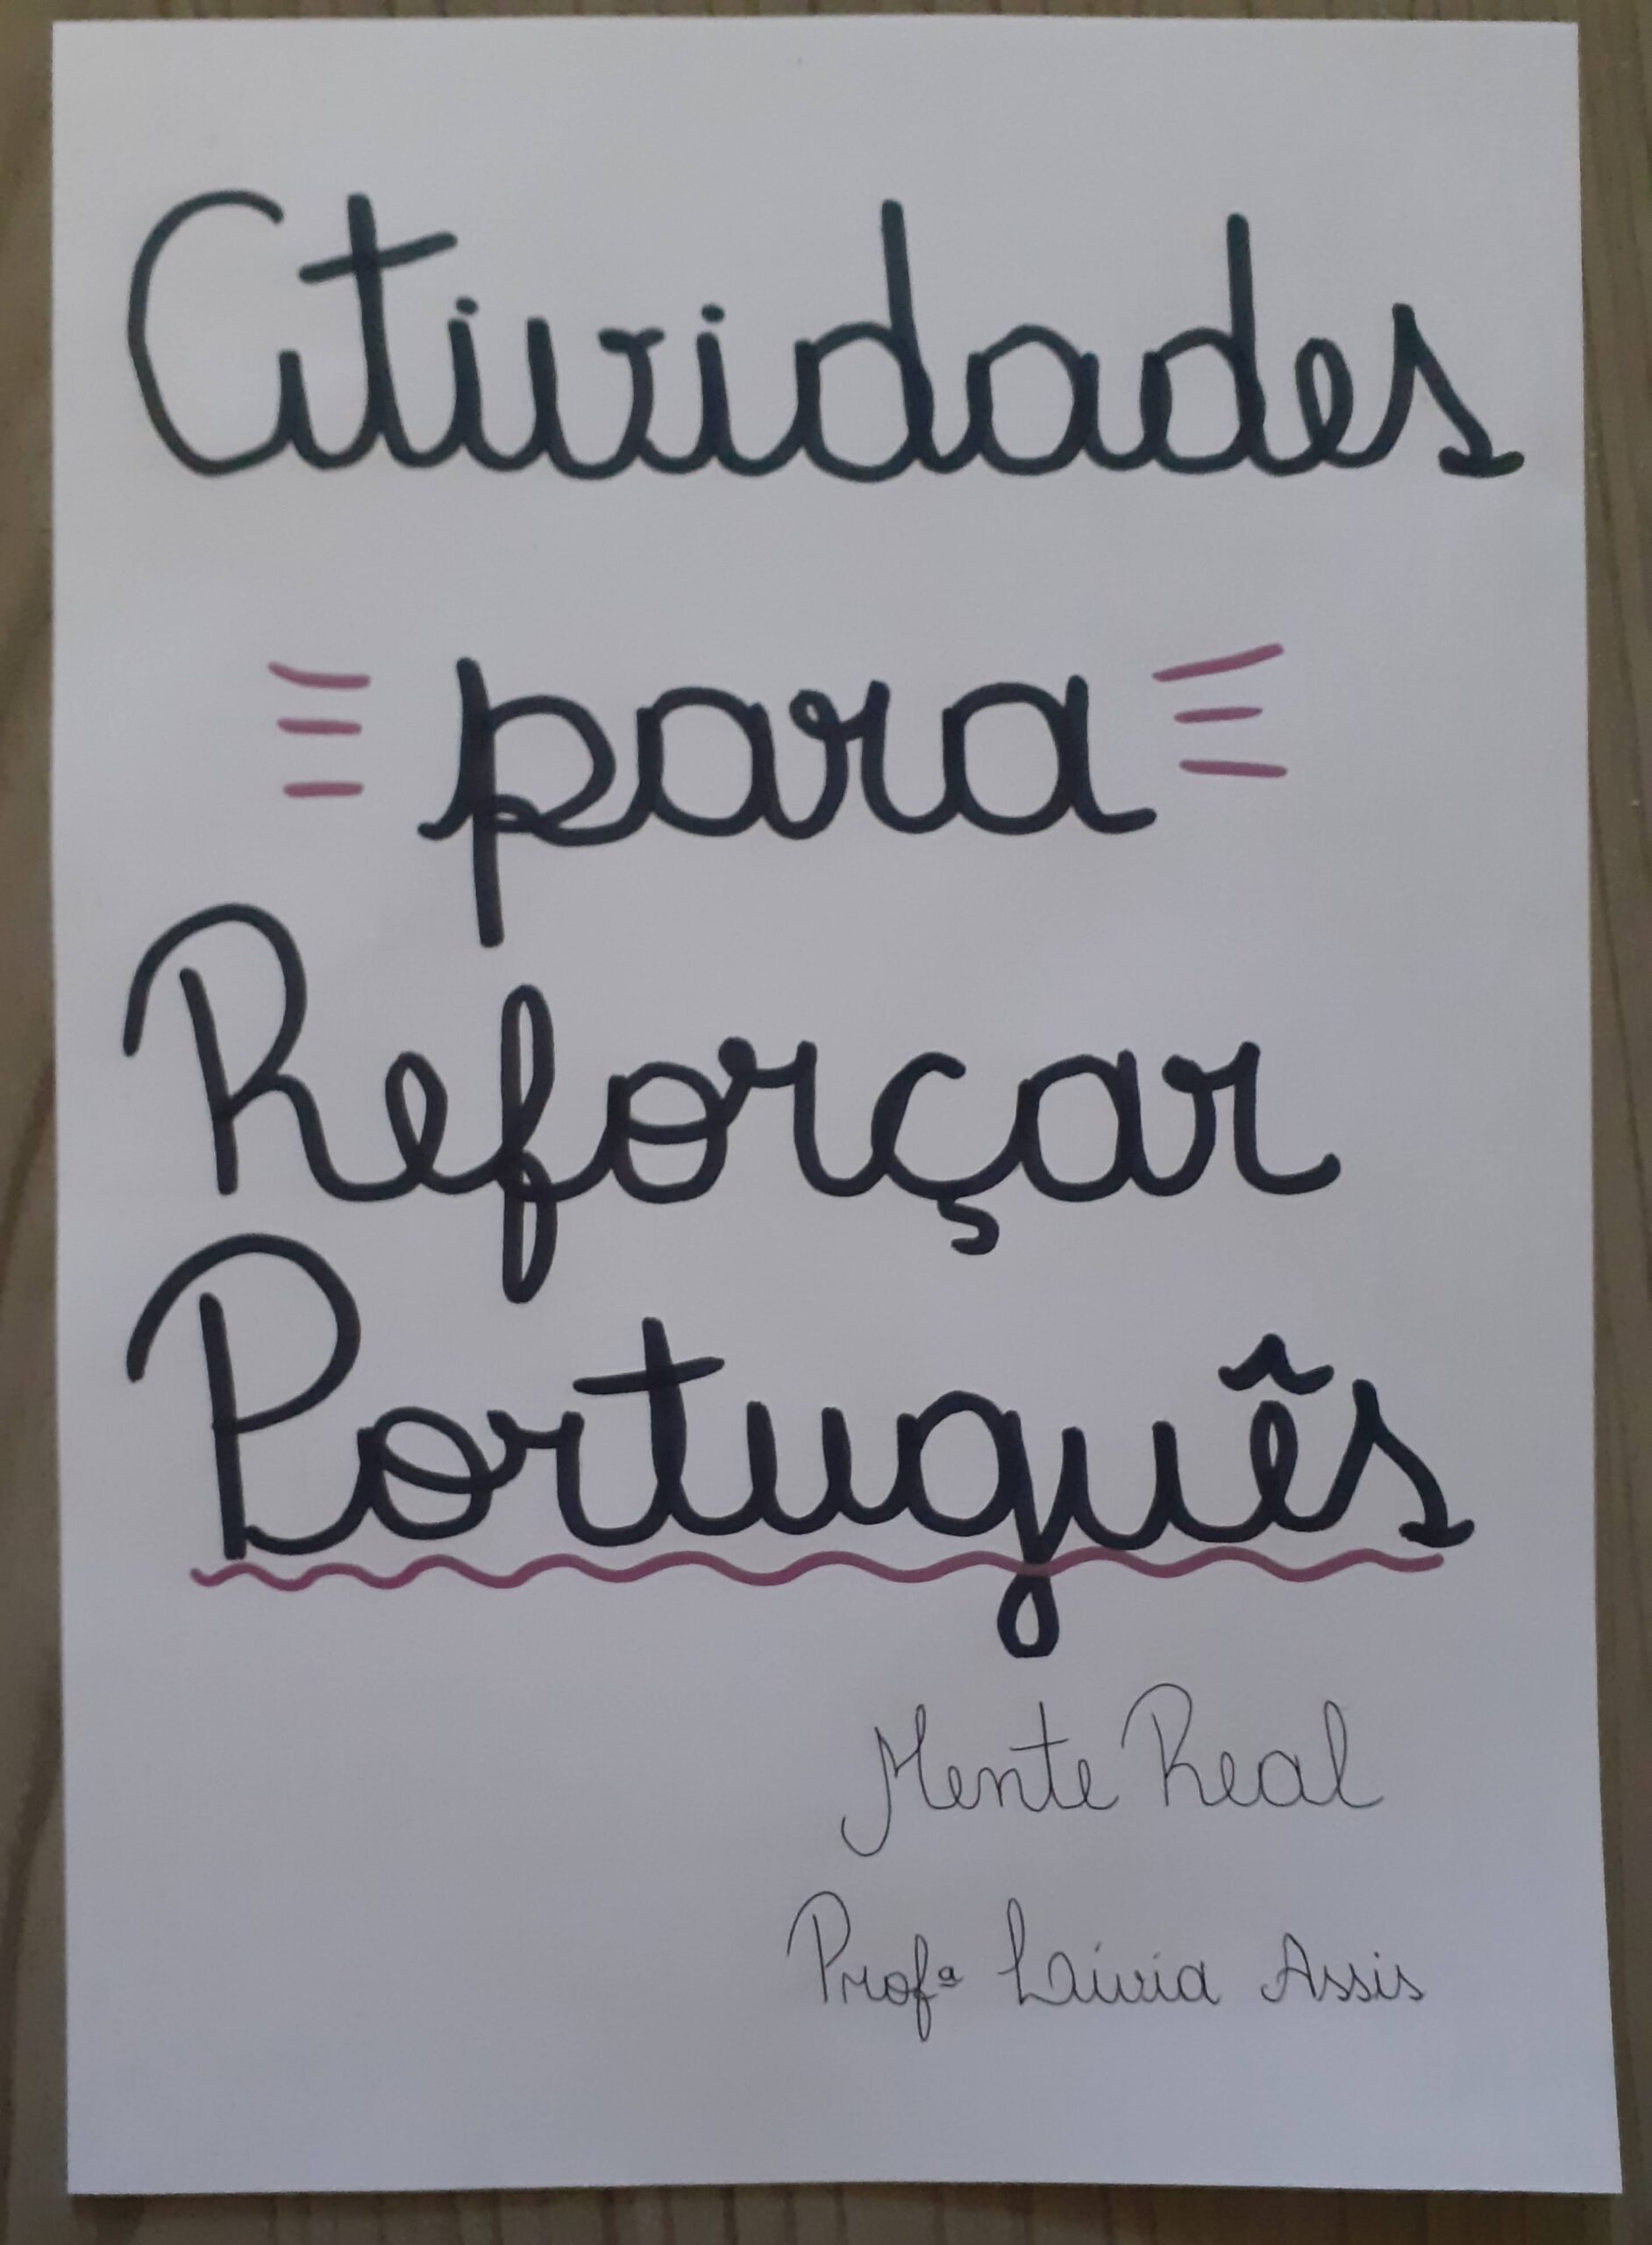 Atividades
para
Reforçar
Português
Mente Real
Profª Laivia Assis